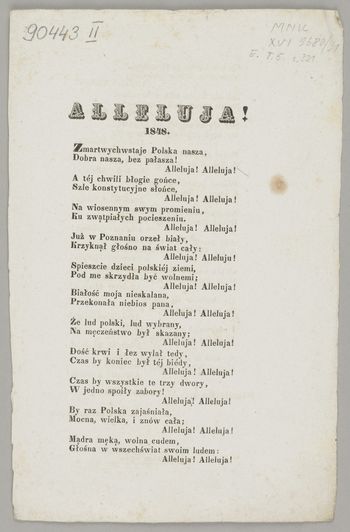 90443 II
MNK
XVI 5580/31
E. T.5. s.321
ALLELUJA!
1848.
Zmartwychwstaje Polska nasza,
Dobra nasza, bez pałasza!
Alleluja! Alleluja!
A téj chwili błogie gońce,
Szle konstytucyjne słońce,
Alleluja! Alleluja!
Na wiosennym swym promieniu,
Ku zwątpiałych pocieszeniu.
Alleluja! Alleluja!
Już w Poznaniu orzeł biały,
Krzyknął głośno na świat cały:
Alleluja! Alleluju!
Spieszcie dzieci polskiéj ziemi,
Pod me skrzydła być wolnemi;
Alleluja! Alleluja!
Białość moja nieskalana,
Przekonała niebios pana,
Alleluja! Alleluja!
Że lud polski, lud wybrany,
Na męczeństwo był skazany;
Alleluja! Alleluja!
Dość krwi i łez wylał tedy,
Czas by koniec był téj biédy,
Alleluja! Alleluja!
Czas by wszystkie te trzy dwory,
W jedno spoiły zabory!
Alleluja! Alleluja!
By raz Polska zajaśniała,
Mocna, wielka, i znów cała;
Alleluja! Alleluja!
Mądra męką, wolna cudem,
Głośna w wszechświat swoim ludem:
Alleluja! Alleluja!